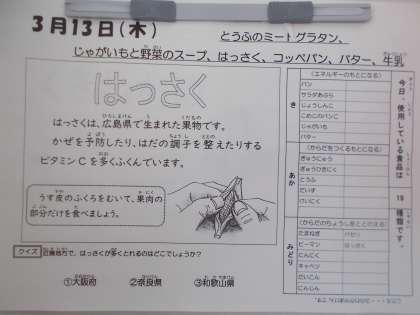 3月13日(木)
とうふのミートグラタン、
じゃがいもと野菜のスープ、はっさく、コッペパン、バター、牛乳
はっさく
はっさくは、広島県で生まれた果物です。
かぜを予防したり、はだの調子を整えたりする
ビタミンCを多くふくんでいます。
うす皮のふくろをむいて、果肉の
部分だけを食べましょう。
クイズ 近畿地方で、はっさくが多くとれるのはどこでしょうか?
①大阪府 ②奈良県 ③和歌山県
今日、使用している食品は 19 種類です。
き
(エネルギーのもとになる)
パン
サラダあぶら
じょうしんこ
こめこのパンこ
じゃがいも
バター
あか
(からだをつくるもとになる)
ぎゅうにゅう
ぎゅうひきにく
とうふ
だいず
けいにく
みどり
(からだのちょうしをととのえる)
たまねぎ パセリ
ピーマン はっさく
にんにく
キャベツ
だいこん
にんじん